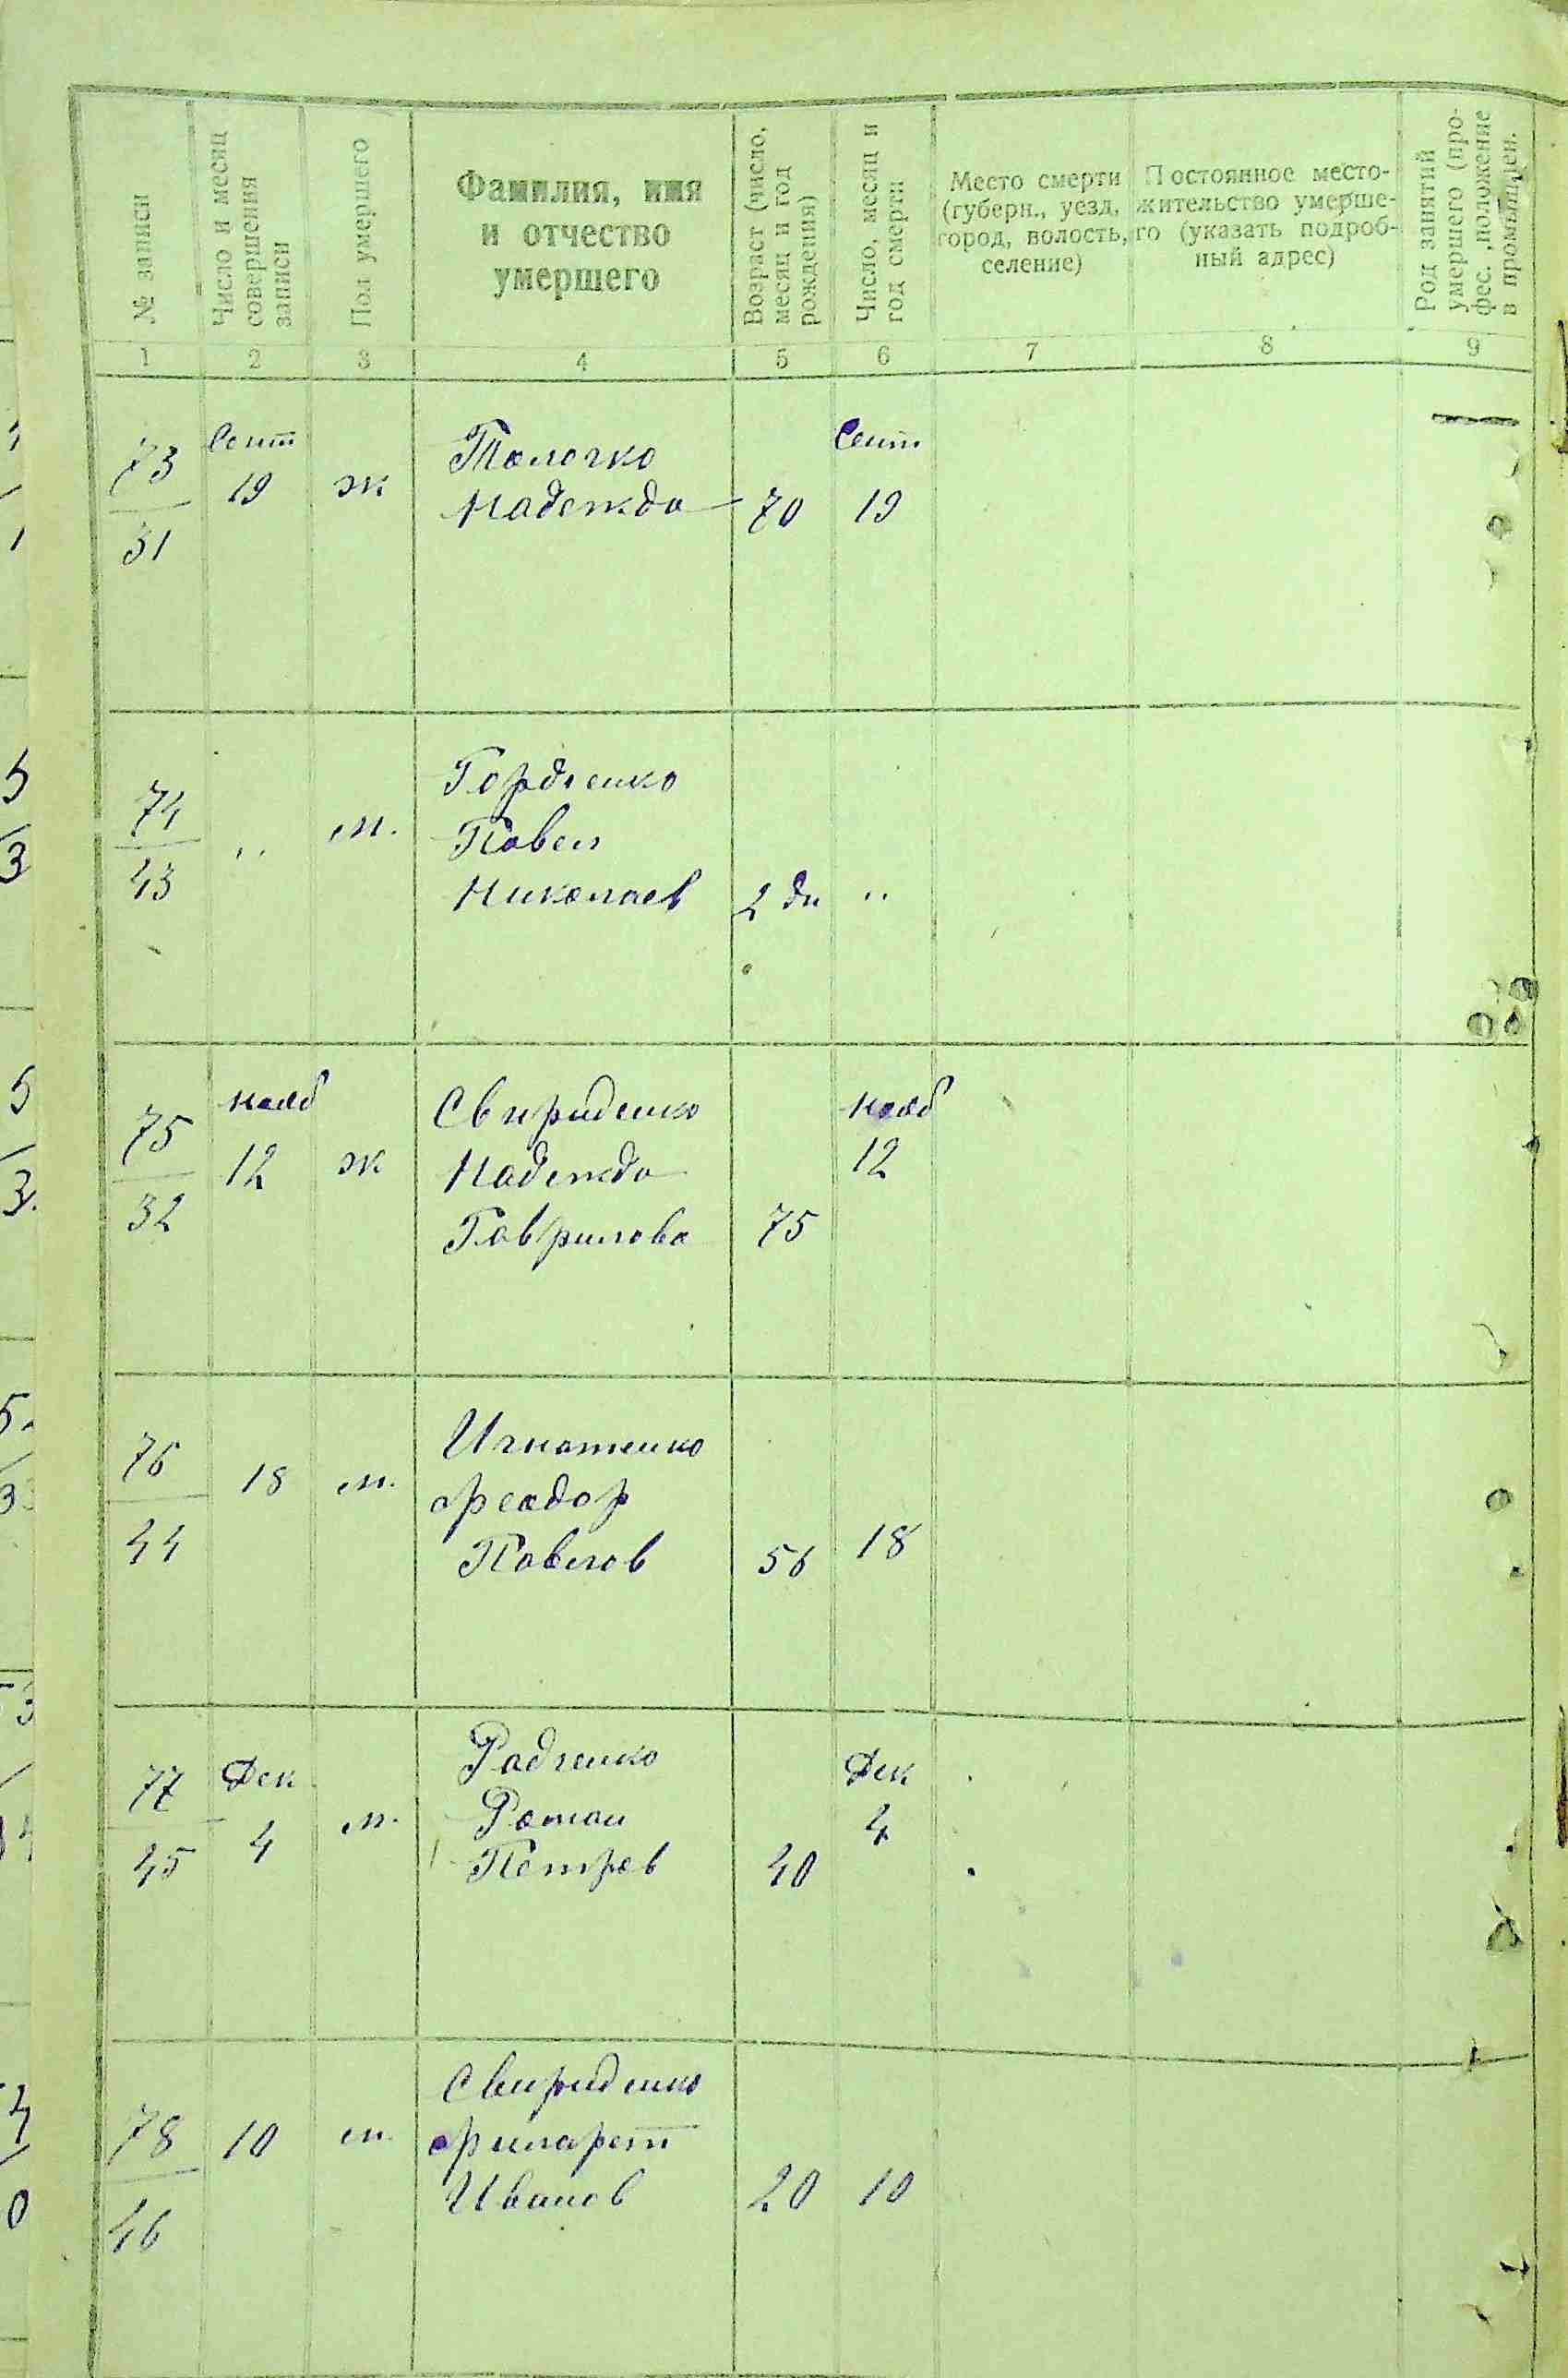 № записи
Число и месяц
совершения
записи
Пол умершего
Фамилия, имя
и отчество
умершего
Возраст (число,
месяц и год
рождения)
Число, месяц и
год смерти
Место смерти
(губерн., уезд,
город, волость,
селение)
Постоянное место-
жительство умерше-
го (указать подроб-
ный адрес)
Род занятий
умершего (про-
фес., положение
в промышлен.
1 2 3 4 5 6 7 8 9
73
31
Сент
19
ж
Толочко
Надежда
70
Сент
19
74
43
"
м.
Гордченко
Павел
Николаев
2 дн
"
75
32
нояб
12
ж
Свириденко
Надежда
Гаврилова
75
нояб
12
76
44
18
м.
Игнатенко
Феодор
Павлов
56
18
77
45
Дек
4
м.
Радченко
Роман
Петров
40
Дек
4
78
46
10
м.
Свириденко
Филарет
Иванов
20
10